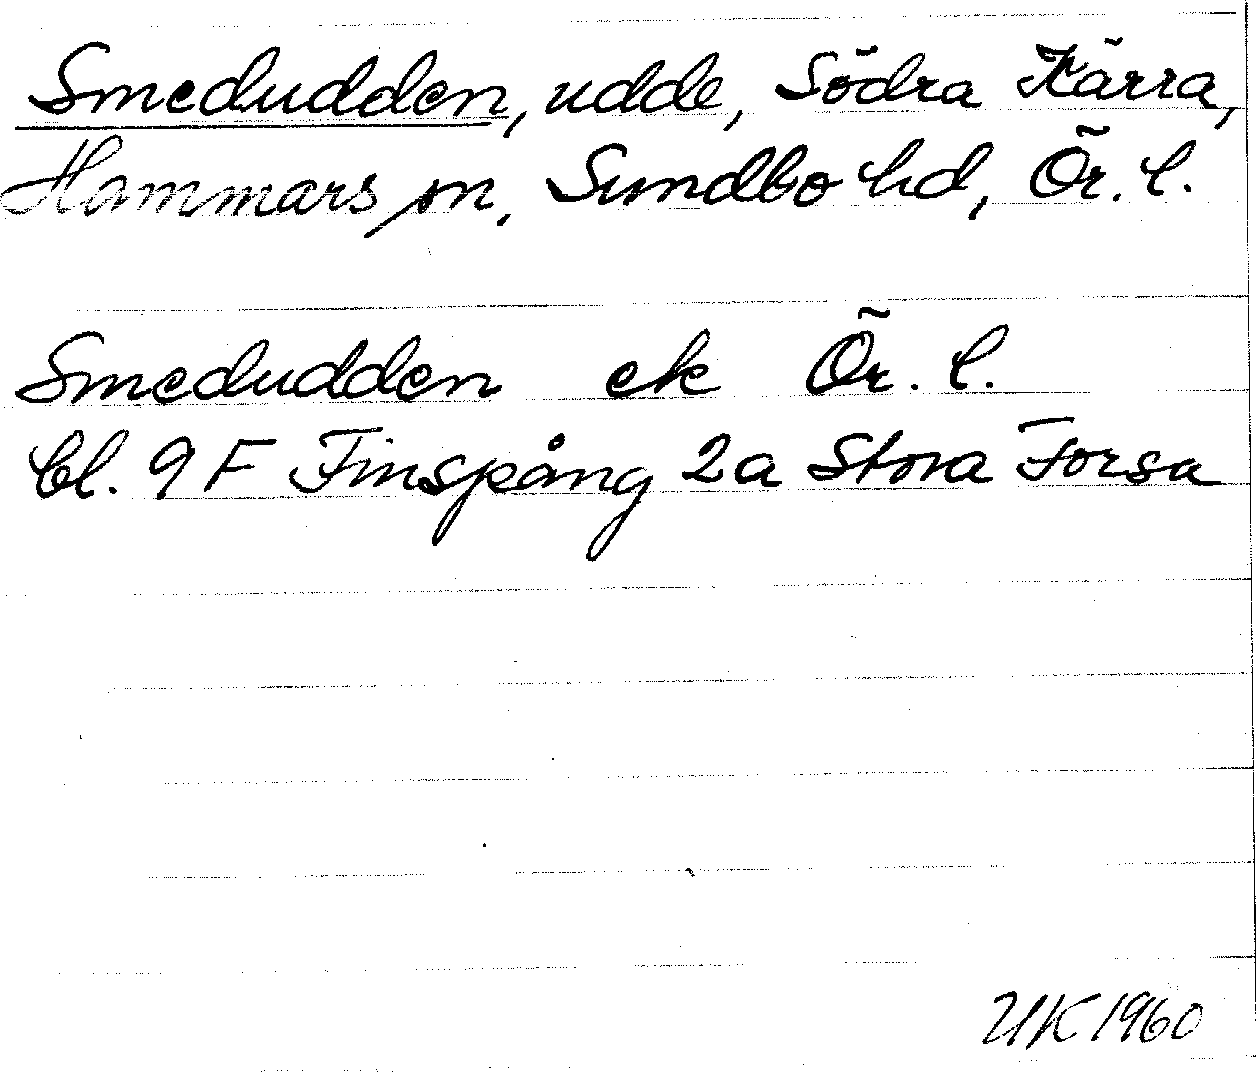 Smedudden, udde, Södra Kärra,
Hammars sn, Sundbo hd, Ör. l.
Smedudden ek Ör. l.
bl. 9 F Finspång 2a Stora Forsa
UK 1960